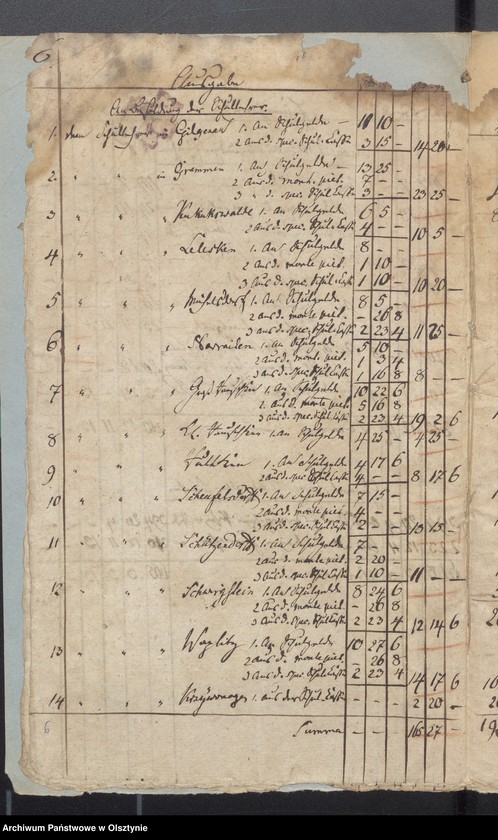 6
Ausgabe
An Besoldung der Schullehrer.
1. dem Schullehrer in Gilgenau 1. An Schulgelde — 11 10 —
2 Aus d. spec. Schul. Casse 3 15 — 14 25 —
2 " " in Grammen 1. An Schulgelde — 13 25 —
2 Aus d. mont. piet. 7 — —
3 " d. spec. Schul Casse 3 — — 23 25 —
3 " " " Kukukswalde 1. An Schulgelde 6 5 —
2 aus d. spec. Schul. Casse 4 — — 10 5 —
4 " " " Lelesken 1. An Schulgelde 8 — —
2 aus d. monte piet. 1 10 —
3 Aus d. spec. Schul. Casse 1 10 — 10 20 —
5 " " " Michelsdorf 1. An Schulgelde 8 5 —
2 aus d. monte piet. — 26 8
3 aus d. spec. Schul Casse 2 23 4 11 25 —
6 " " " Narraiten 1. An Schulgelde 5 10 —
2 aus d. mont. piet. 1 3 4
3 aus d. spec. Schul Casse 1 16 8 8 — —
7 " " " 1. An Schulgelde 10 22 6
2. aus d. monte piet. 5 16 8
3 aus d. spec. Schul Casse 2 23 4 19 2 6
8 " " " Kl. 1. An Schulgelde 4 25 — 4 25 —
9 " " " 1. An Schulgelde 4 17 6
2 aus d. spec. Schul Casse 4 — — 8 17 6
10 " " " Scheufelsdorf 1. An Schulgelde 7 15 —
2 aus d. monte piet. 4 — —
3 aus d. spec. Schul Casse 2 — — 13 15 —
11 " " " Schützendorf 1. An Schulgelde 7 — —
2 aus d. monte piet. 2 20 —
3 aus d. spec. Schul Casse 1 10 — 11 — —
12 " " " Schwirgstein 1. An Schulgelde 8 24 6
2 aus d. monte piet. — 26 8
3 aus d. spec. Schul Casse 2 23 4 12 14 6
13 " " " Waplitz 1. An Schulgelde 10 27 6
2 aus d. monte piet. — 26 8
3 aus d. spec. Schul Casse 2 23 4 14 17 6
14 " " " 1. aus der Schul. Casse — — — 2 20 —
6 Summa — — — 165 27 —
Archiwum Państwowe w Olsztynie